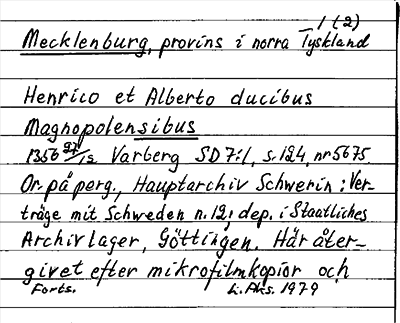 1 (2)
Mecklenburg, provins i norra Tyskland
Henrico et Alberto ducibus
Magnopolensibus
1356 27/12. Varberg SD 7:1, s. 124, nr 5675
Or. på perg., Hauptarchiv Schwerin: Ver-
träge mit Schweden n. 12; dep. i Staatliches
Archivlager, Göttingen. Här åter-
givet efter mikrofilmkopior och
Forts. L. Aks. 1979